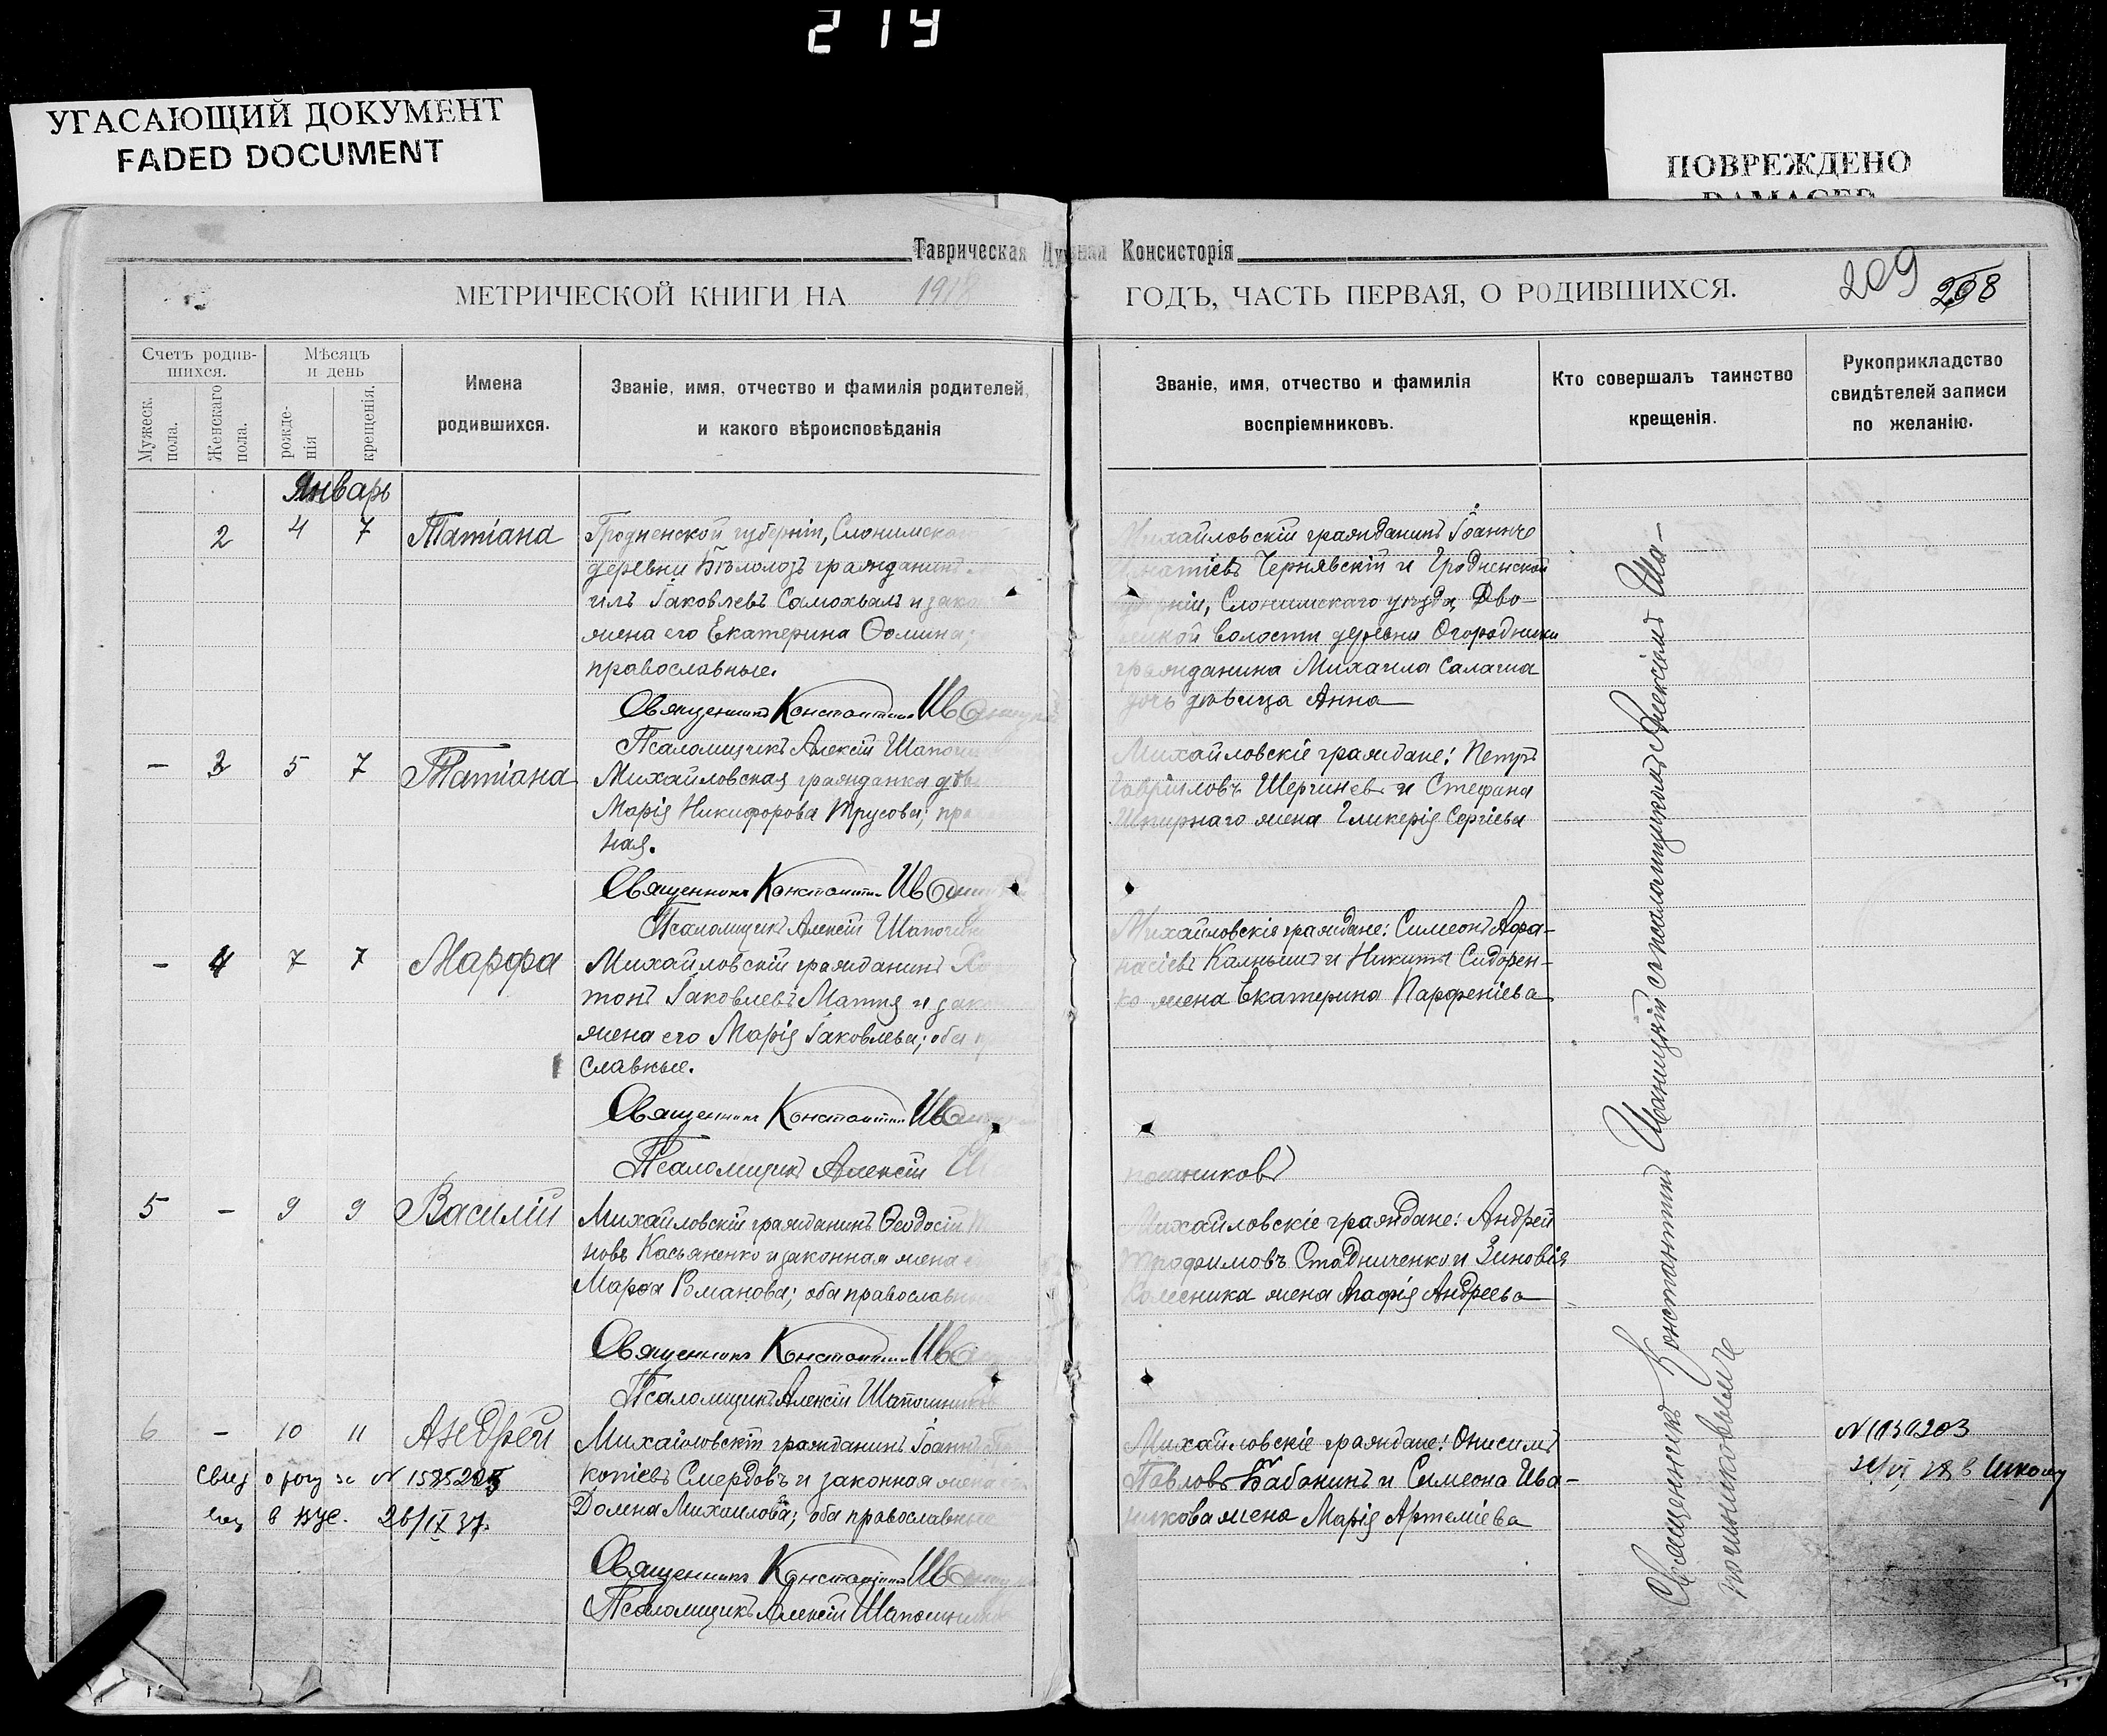 219
УГАСАЮЩИЙ ДОКУМЕНТ
FADED DOCUMENT
ПОВРЕЖДЕНО
DAMAGED
Таврическая Духовная Консисторія
МЕТРИЧЕСКОЙ КНИГИ НА 1918
ГОДЪ, ЧАСТЬ ПЕРВАЯ, О РОДИВШИХСЯ.
209 208
Счетъ родив-
шихся.
Мужеск.
пола.
Женскаго
пола.
Мѣсяцъ
и день
рожде-
нія
крещенія.
Имена
родившихся.
Званіе, имя, отчество и фамилія родителей,
и какого вѣроисповѣданія
Званіе, имя, отчество и фамилія
воспріемниковъ.
Кто совершалъ таинство
крещенія.
Рукоприкладство
свидѣтелей записи
по желанію.
Январь
2 4 7 Татіана
Гродненской губерніи, Слонимска
деревни Бѣлолозъ гражданинъ
илъ Іаковлевъ Самохвалъ и зако
жена его Екатерина Ѳомина;
православные.
Священникъ Константинъ Ива
Псаломщикъ Алексій Шапочн
Михайловскій гражданинъ Іоаннъ
Игнатіевъ Чернявскій и Гродненской
губерніи, Слонимскаго уѣзда, Дво-
рецкой волости деревни Огородники
гражданина Михаила Салагиа
дочь дѣвица Анна
- 3 5 7 Татіана
Михайловская гражданка дѣви
Марія Никифорова Трусова; право
ная.
Священникъ Константинъ Ива
Псаломщикъ Алексій Шапочни
Михайловскіе граждане: Петръ
Гавріиловъ Шерчиневъ и Стефана
Шпирнаго жена Гликерія Сергіева
- 4 7 7 Марѳа
Михайловскій гражданинъ
тонъ Іаковлевъ Маття и зако
жена его Марія Іаковлева; оба п
славные.
Священникъ Константинъ Ива
Псаломщикъ Алексій Ша
почниковъ
Михайловскіе граждане: Симеонъ Аѳа-
насіевъ Калнышъ и Никиты Сидорен-
ко жена Екатерина Парѳеніева
5 - 9 9 Василій
Михайловскій гражданинъ Ѳеодосій
новъ Касьяненко и законная жена е
Марѳа Романова; оба православные
Священникъ Константинъ Ива
Псаломщикъ Алексій Шапошников
Михайловскіе граждане: Андрей
Трофимовъ Стадниченко и Зиновія
Колесника жена Агафія Андреева
6 - 10 11 Андрей
Михайловскій гражданинъ Іоаннъ
копіевъ Смердовъ и законная жена
Домна Михаилова; оба православные
Священникъ Константинъ Ива
Псаломщикъ Алексій Шапошник
№ 1585203
26/IX 37.
Михайловскіе граждане: Онисимъ
Павловъ Бабанинъ и Симеона Ива-
никова жена Марія Артеміева
№ 1130203
в школу
Священникъ Константинъ Иваницкій съ псаломщикомъ Алексіемъ Ша-
почниковымъ